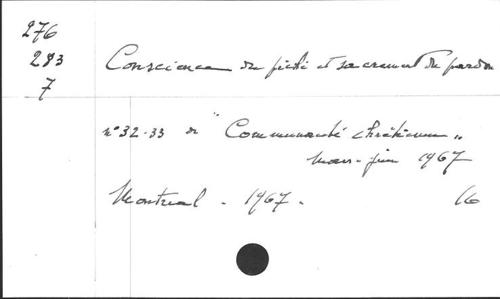 276
283
7
Conscience du péché et sacrement du pardon
n° 32-33 de "Communauté chrétienne"
Mars-juin 1967
Montreal - 1967 -
16